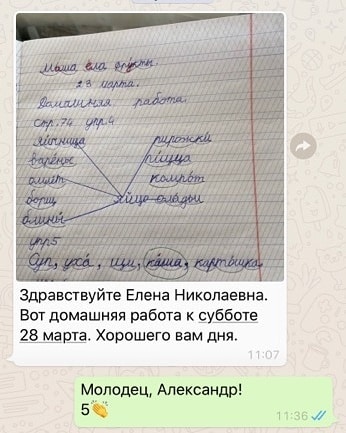 Маша ела фрукты.
23 марта.
Домашняя работа.
стр. 74 упр. 4
яичница пирожки
варенье пицца
омлет компот
борщ яйцо оладьи
блины
упр5
Суп, уха, щи, каша, картошка.
Здравствуйте Елена Николаевна.
Вот домашняя работа к субботе
28 марта. Хорошего вам дня.
11:07
Молодец, Александр!
5👏
11:36